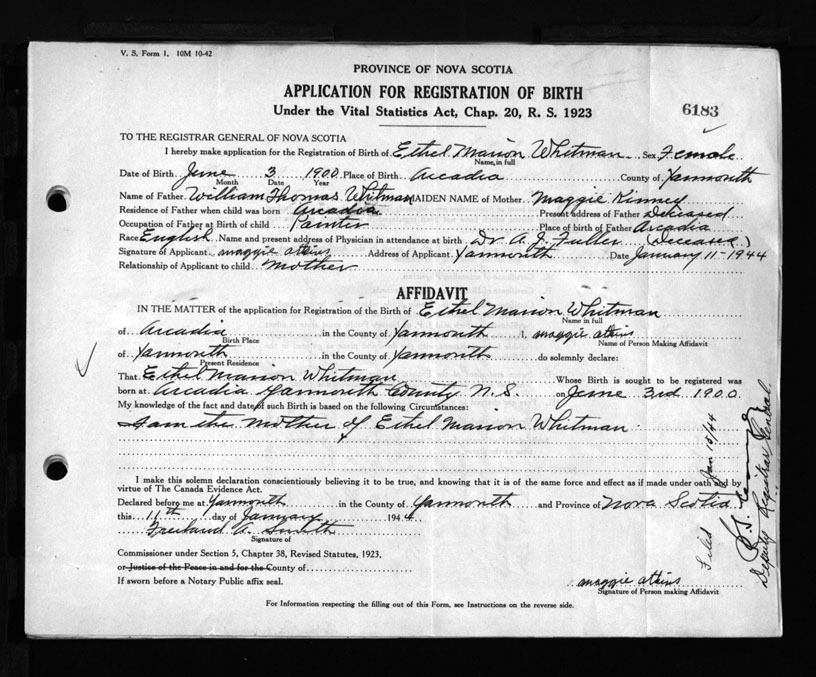 V. S. Form 1. 10M 10-42
PROVINCE OF NOVA SCOTIA
APPLICATION FOR REGISTRATION OF BIRTH
Under the Vital Statistics Act, Chap. 20, R. S. 1923
6183
TO THE REGISTRAR GENERAL OF NOVA SCOTIA
I hereby make application for the Registration of Birth of Ethel Marion Whitman Sex Female
Name, in full
Date of Birth June 3 1900 Place of Birth Arcadia County of Yarmouth
Month Date Year
Name of Father William Thomas Whitman MAIDEN NAME of Mother Maggie Kinney
Residence of Father when child was born Arcadia Present address of Father Deceased
Occupation of Father at Birth of child Painter Place of birth of Father Arcadia
Race English Name and present address of Physician in attendance at birth Dr. A. J. Fuller (Deceased)
Signature of Applicant maggie atkins Address of Applicant Yarmouth Date January 11-1944
Relationship of Applicant to child Mother
AFFIDAVIT
IN THE MATTER of the application for Registration of the Birth of Ethel Marion Whitman
Name in full
of Arcadia in the County of Yarmouth I, maggie atkins
Birth Place Name of Person Making Affidavit
of Yarmouth in the County of Yarmouth do solemnly declare:
Present Residence
That Ethel Marion Whitman Whose Birth is sought to be registered was
born at Arcadia Yarmouth County N. S. on June 3rd 1900
My knowledge of the fact and date of such Birth is based on the following Circumstances:
I am the Mother of Ethel Marion Whitman
I make this solemn declaration conscientiously believing it to be true, and knowing that it is of the same force and effect as if made under oath and by
virtue of The Canada Evidence Act.
Declared before me at Yarmouth in the County of Yarmouth and Province of Nova Scotia
this 11th day of January 1944
A. Smith
Signature of
Commissioner under Section 5, Chapter 38, Revised Statutes, 1923,
or Justice of the Peace in and for the County of
If sworn before a Notary Public affix seal.
maggie atkins
Signature of Person making Affidavit
For Information respecting the filling out of this Form, see Instructions on the reverse side.
Filed Jan 15/44
Deputy Registrar General.